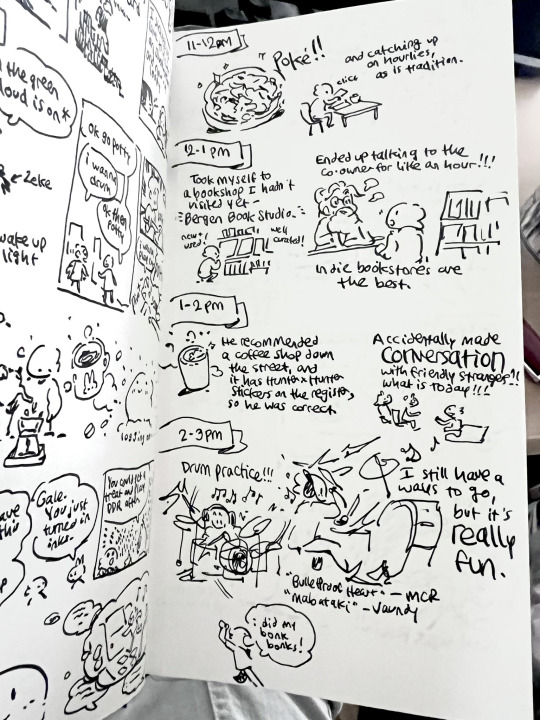 n the green
loud is on*
Ok go potty
i wanna
drum
ok then
potty
← Zeke
wake up
light
Gale:
You just
turned in
inko-
You could get a
treat and play
DDR after
11-12pm
Poké!!
and catching up
on hourlies,
as is tradition.
click
12-1pm
Took myself to
a bookshop I hadn't
visited yet -
Bergen Book Studio.
new &
used!
well
curated!
Ended up talking to the
co-owner for like an hour!!!
Indie bookstores are
the best.
1-2pm
He recommended
a coffee shop down
the street, and
it has Hunter x Hunter
stickers on the register,
so he was correct
Accidentally made
CONVERSATION
with friendly strangers?!
what is today!!!
2-3pm
Drum practice!!!
I still have a
ways to go,
but it's
really
fun.
"Bulletproof Heart" - MCR
"Mabataki" - Vaundy
i did my
bonk
bonks!